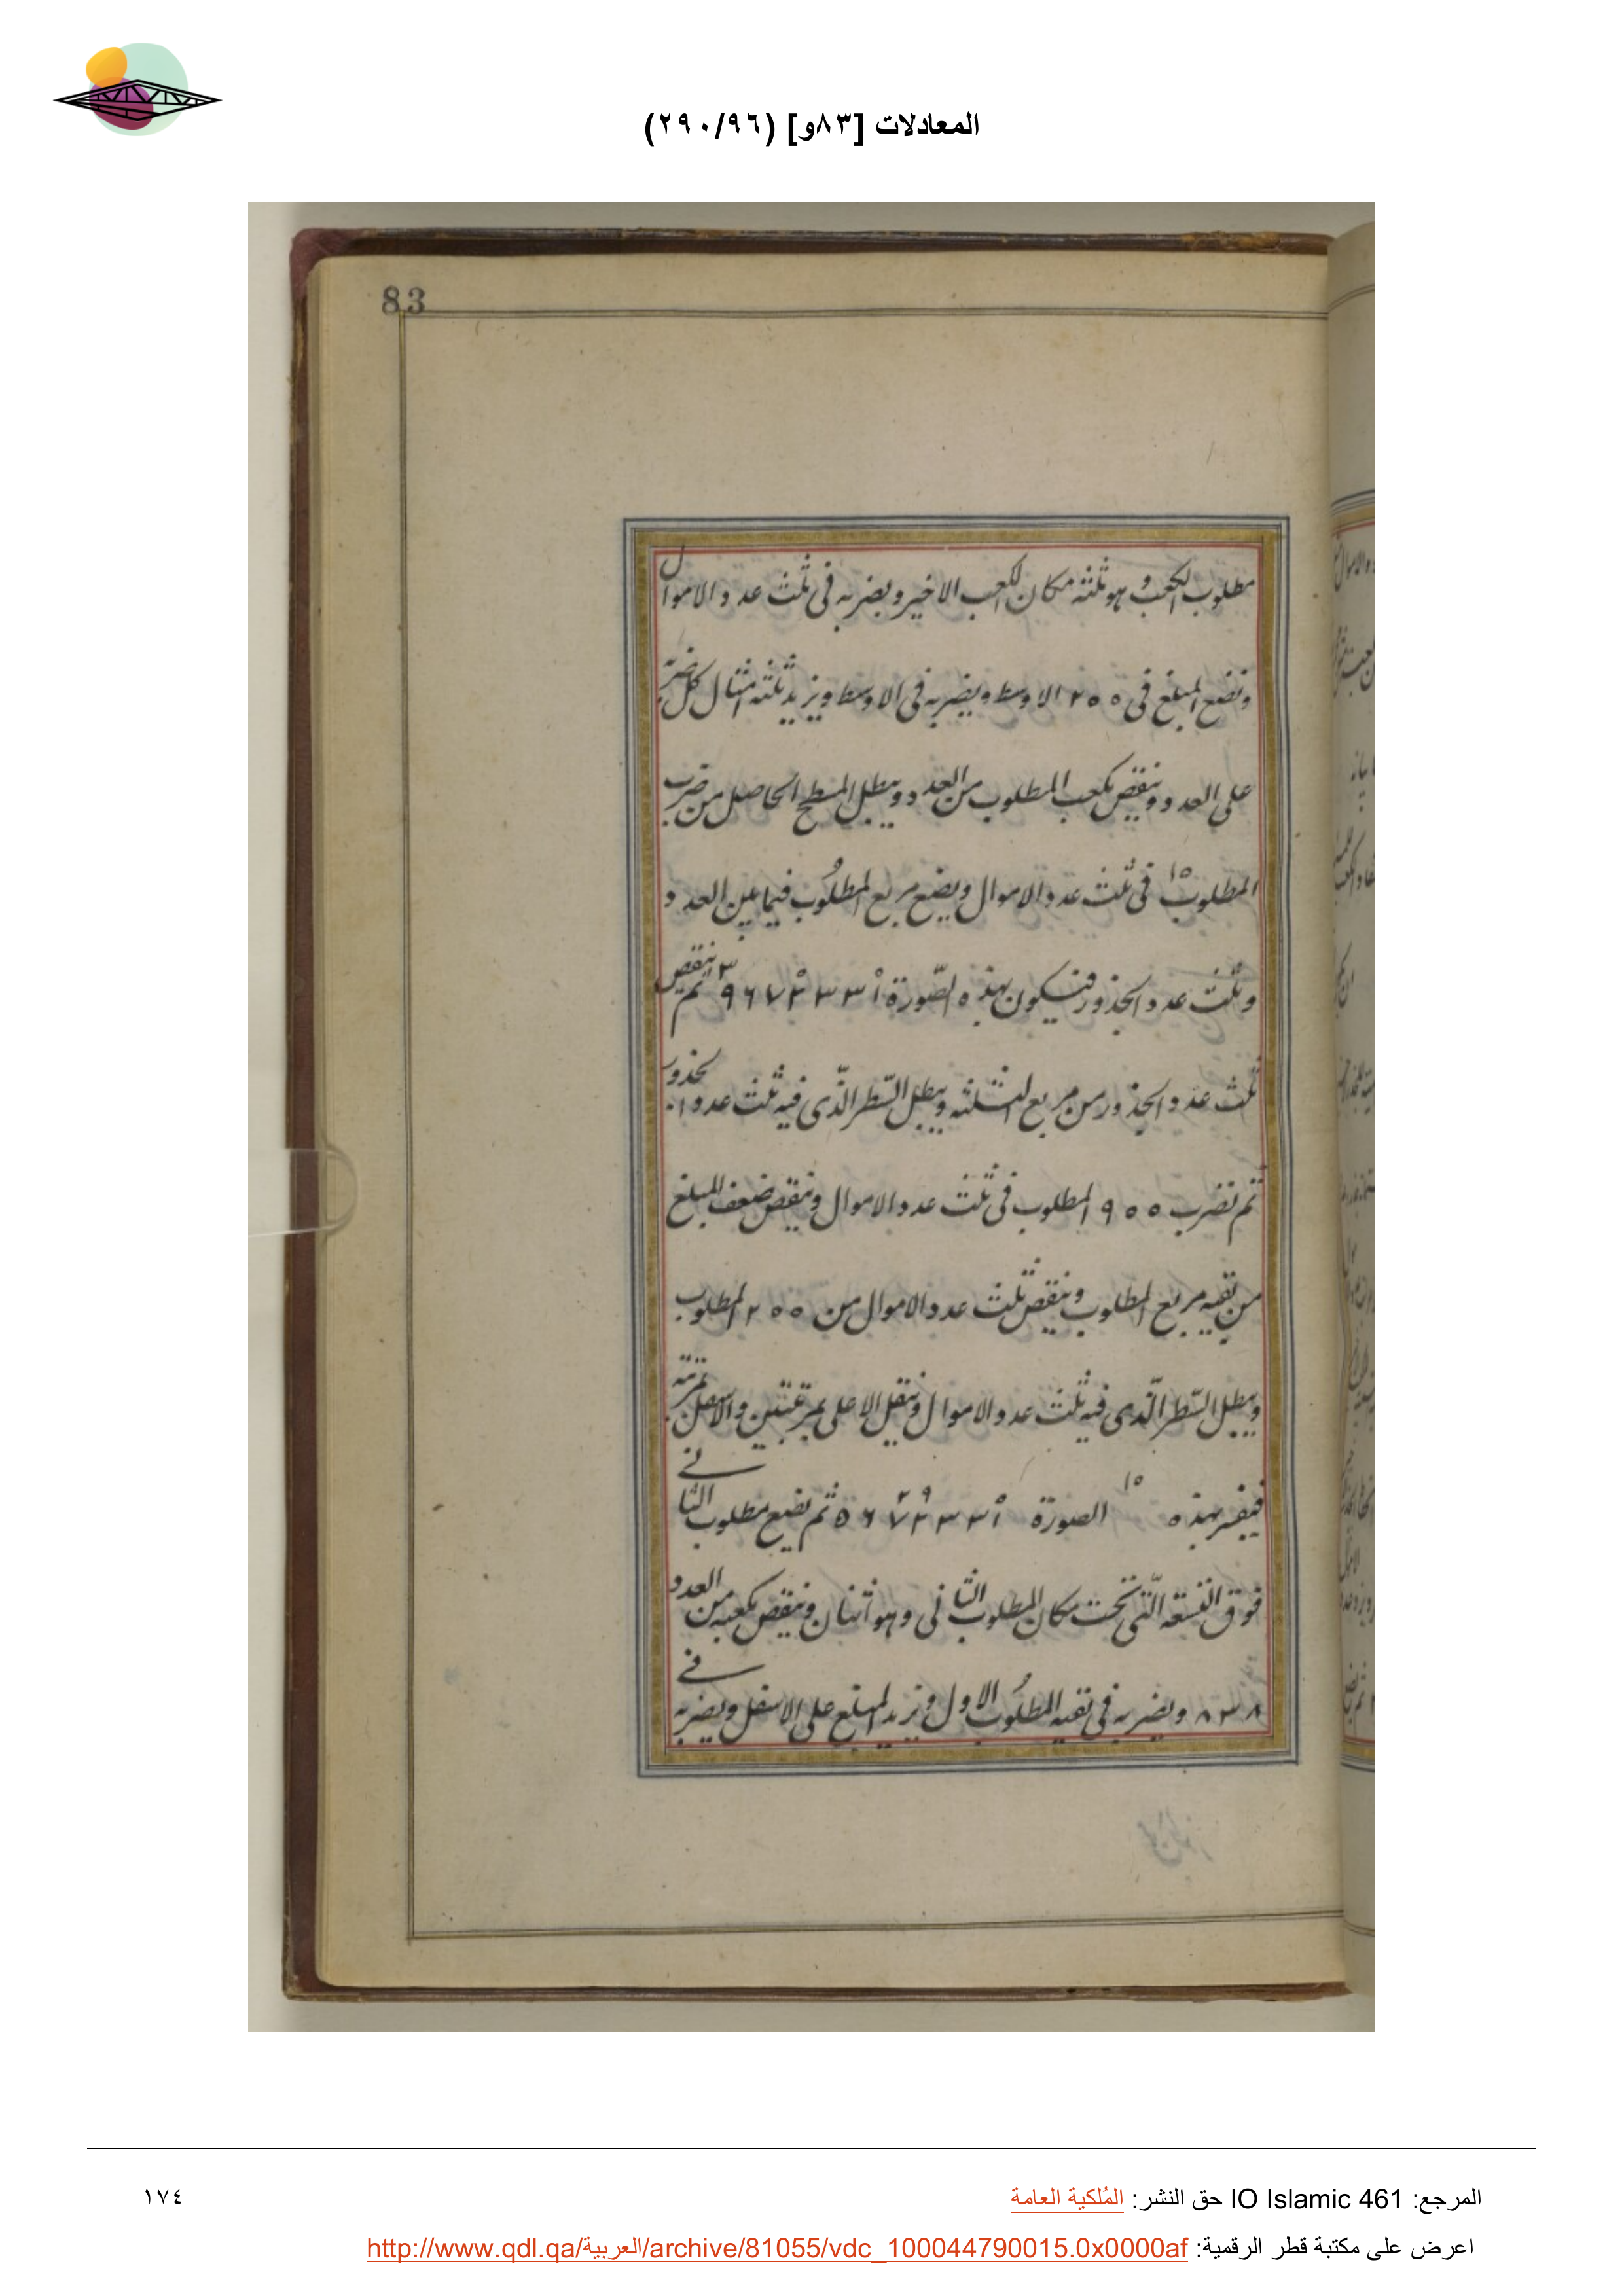 المعادلات [٨٣و] (٢٩٠/٩٦)
83
مطلوب الكعب وهو ثلثه مكان الكعب الاخير ويضربه فى ثلث عدد الاموال
ونضع المبلغ فى ٢٥٥ الاوسط ويضربه فى الاوسط ويزيد ثلثه امثال كل ضربه
على العدد وينقص مكعب المطلوب من العدد ويبطل المسطح الحاصل من ضرب
المطلوب ١٥ فى ثلث عدد الاموال ويضع مربع المطلوب فيما بين العدد
وثلث عدد الجذور فيكون بهذه الصّورة ٩٦٧ ٣٣١ ٣ ثم ينقص
ثلث عدد الجذور من مربع الثلثه ويبطل السّطر الّذى فيه ثلث عدد الجذور
ثم نضرب ٩٥٥ المطلوب فى ثلث عدد الاموال وينقص ضعف المبلغ
من بقيه مربع المطلوب وينقص ثلث عدد الاموال من ٢٥٥ المطلوب
ويبطل السّطر الّذى فيه ثلث عدد الاموال وينقل الاعلى بمرتبتين والاسفل بمرتبه
بهذه ١٥ الصورة ثم يضع مطلوب الثانى
فوق التسعه الّتى تحت مكان المطلوب الثانى وهو اثنان وينقص مكعبه من العدد
٨٣٨ ويضربه فى بقيه المطلوب الاول ويزيد المبلغ على الاسفل ويضربه فى
المرجع: IO Islamic 461 حق النشر: المُلكية العامة
١٧٤
اعرض على مكتبة قطر الرقمية: http://www.qdl.qa/العربية/archive/81055/vdc_100044790015.0x0000af